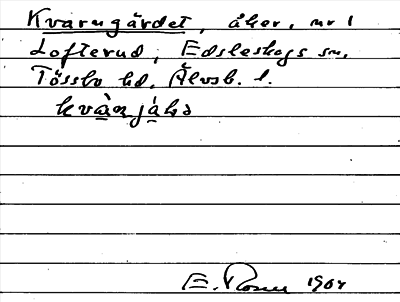 Kvarngärdet, åker, nr 1
Lofterud, Edsleskogs sn,
Tössbo hd, Älvsb. l.
E. Rosell 1904